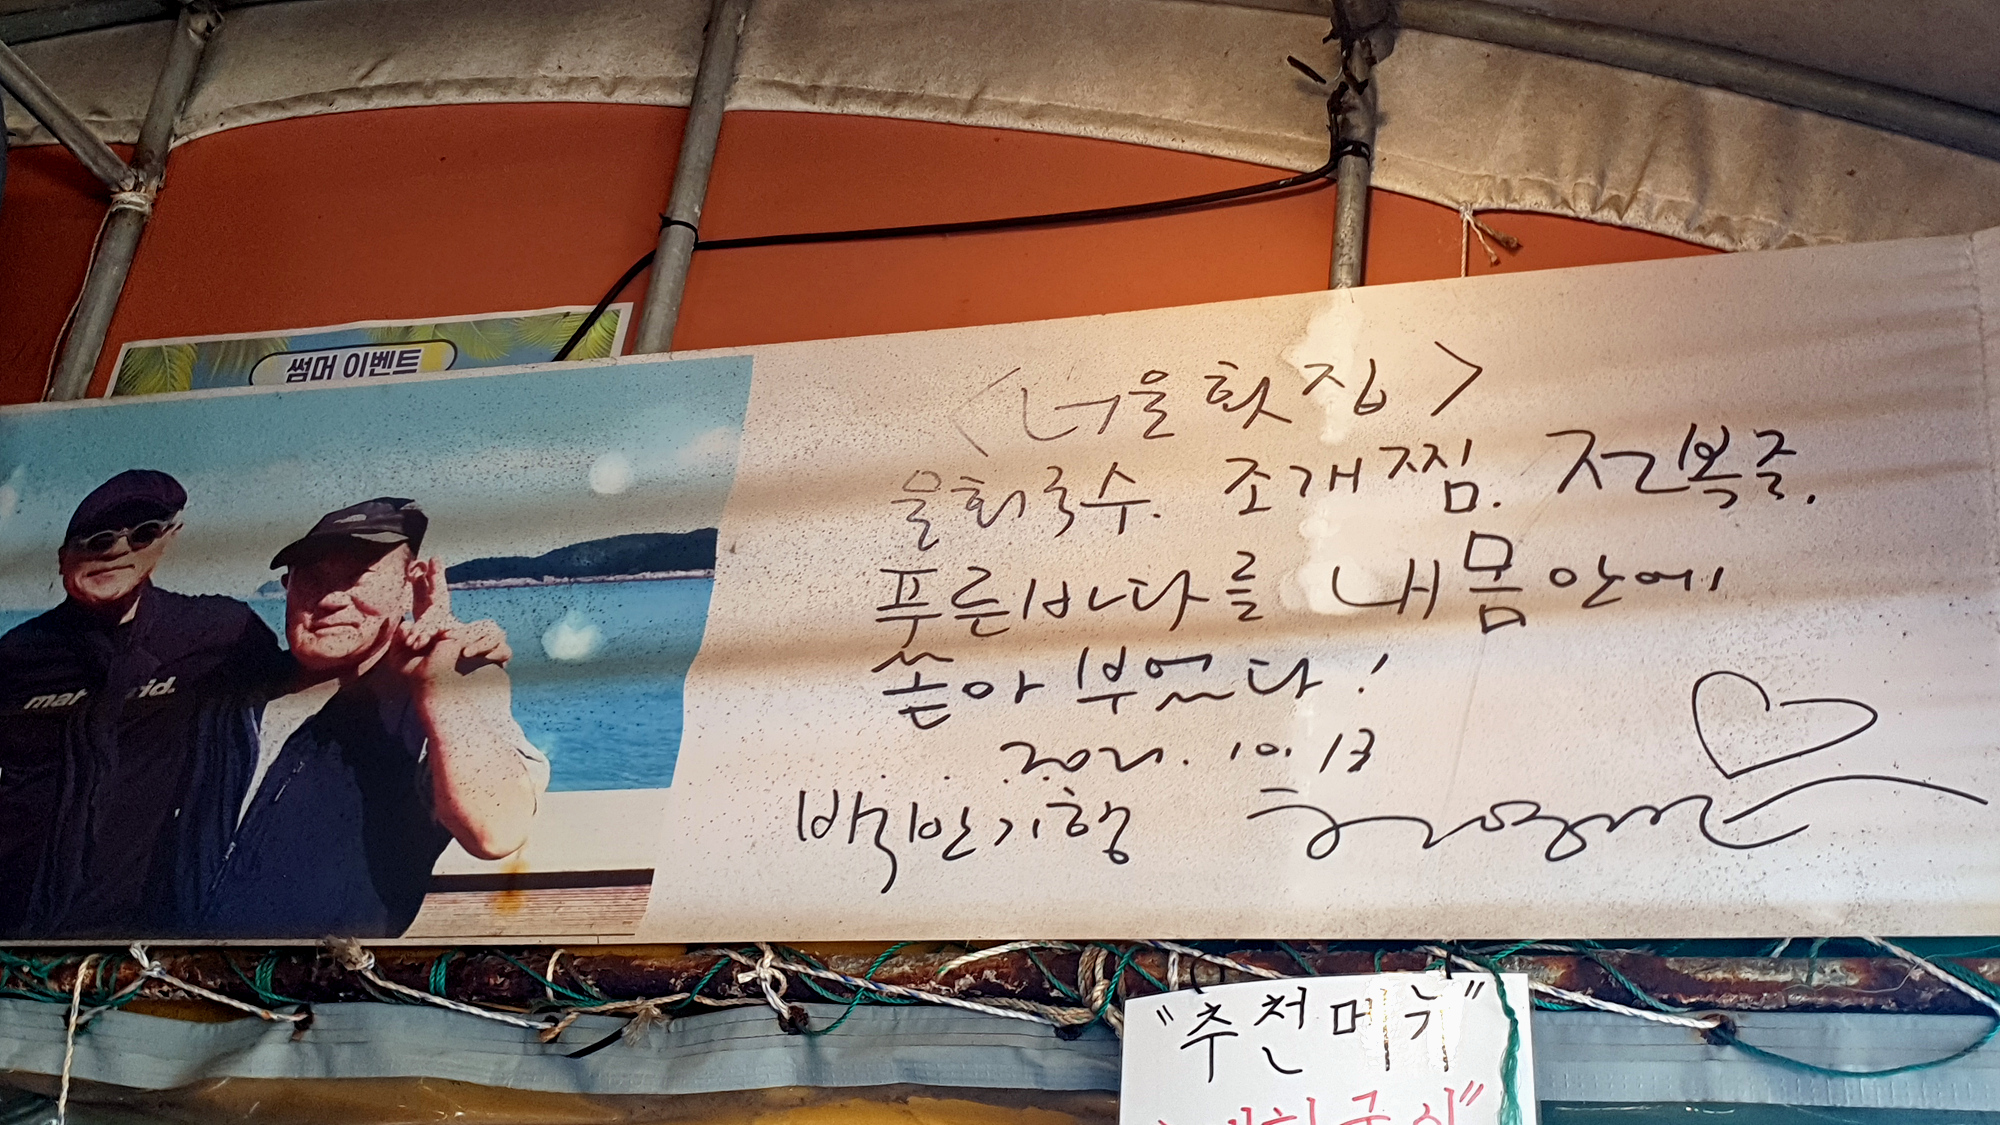 썸머 이벤트
<너울횟집>
물회국수. 조개찜. 전복죽.
푸른바다를 내 몸안에
쏟아 부었다!
2021. 10. 13
백반기행
"추천메뉴"